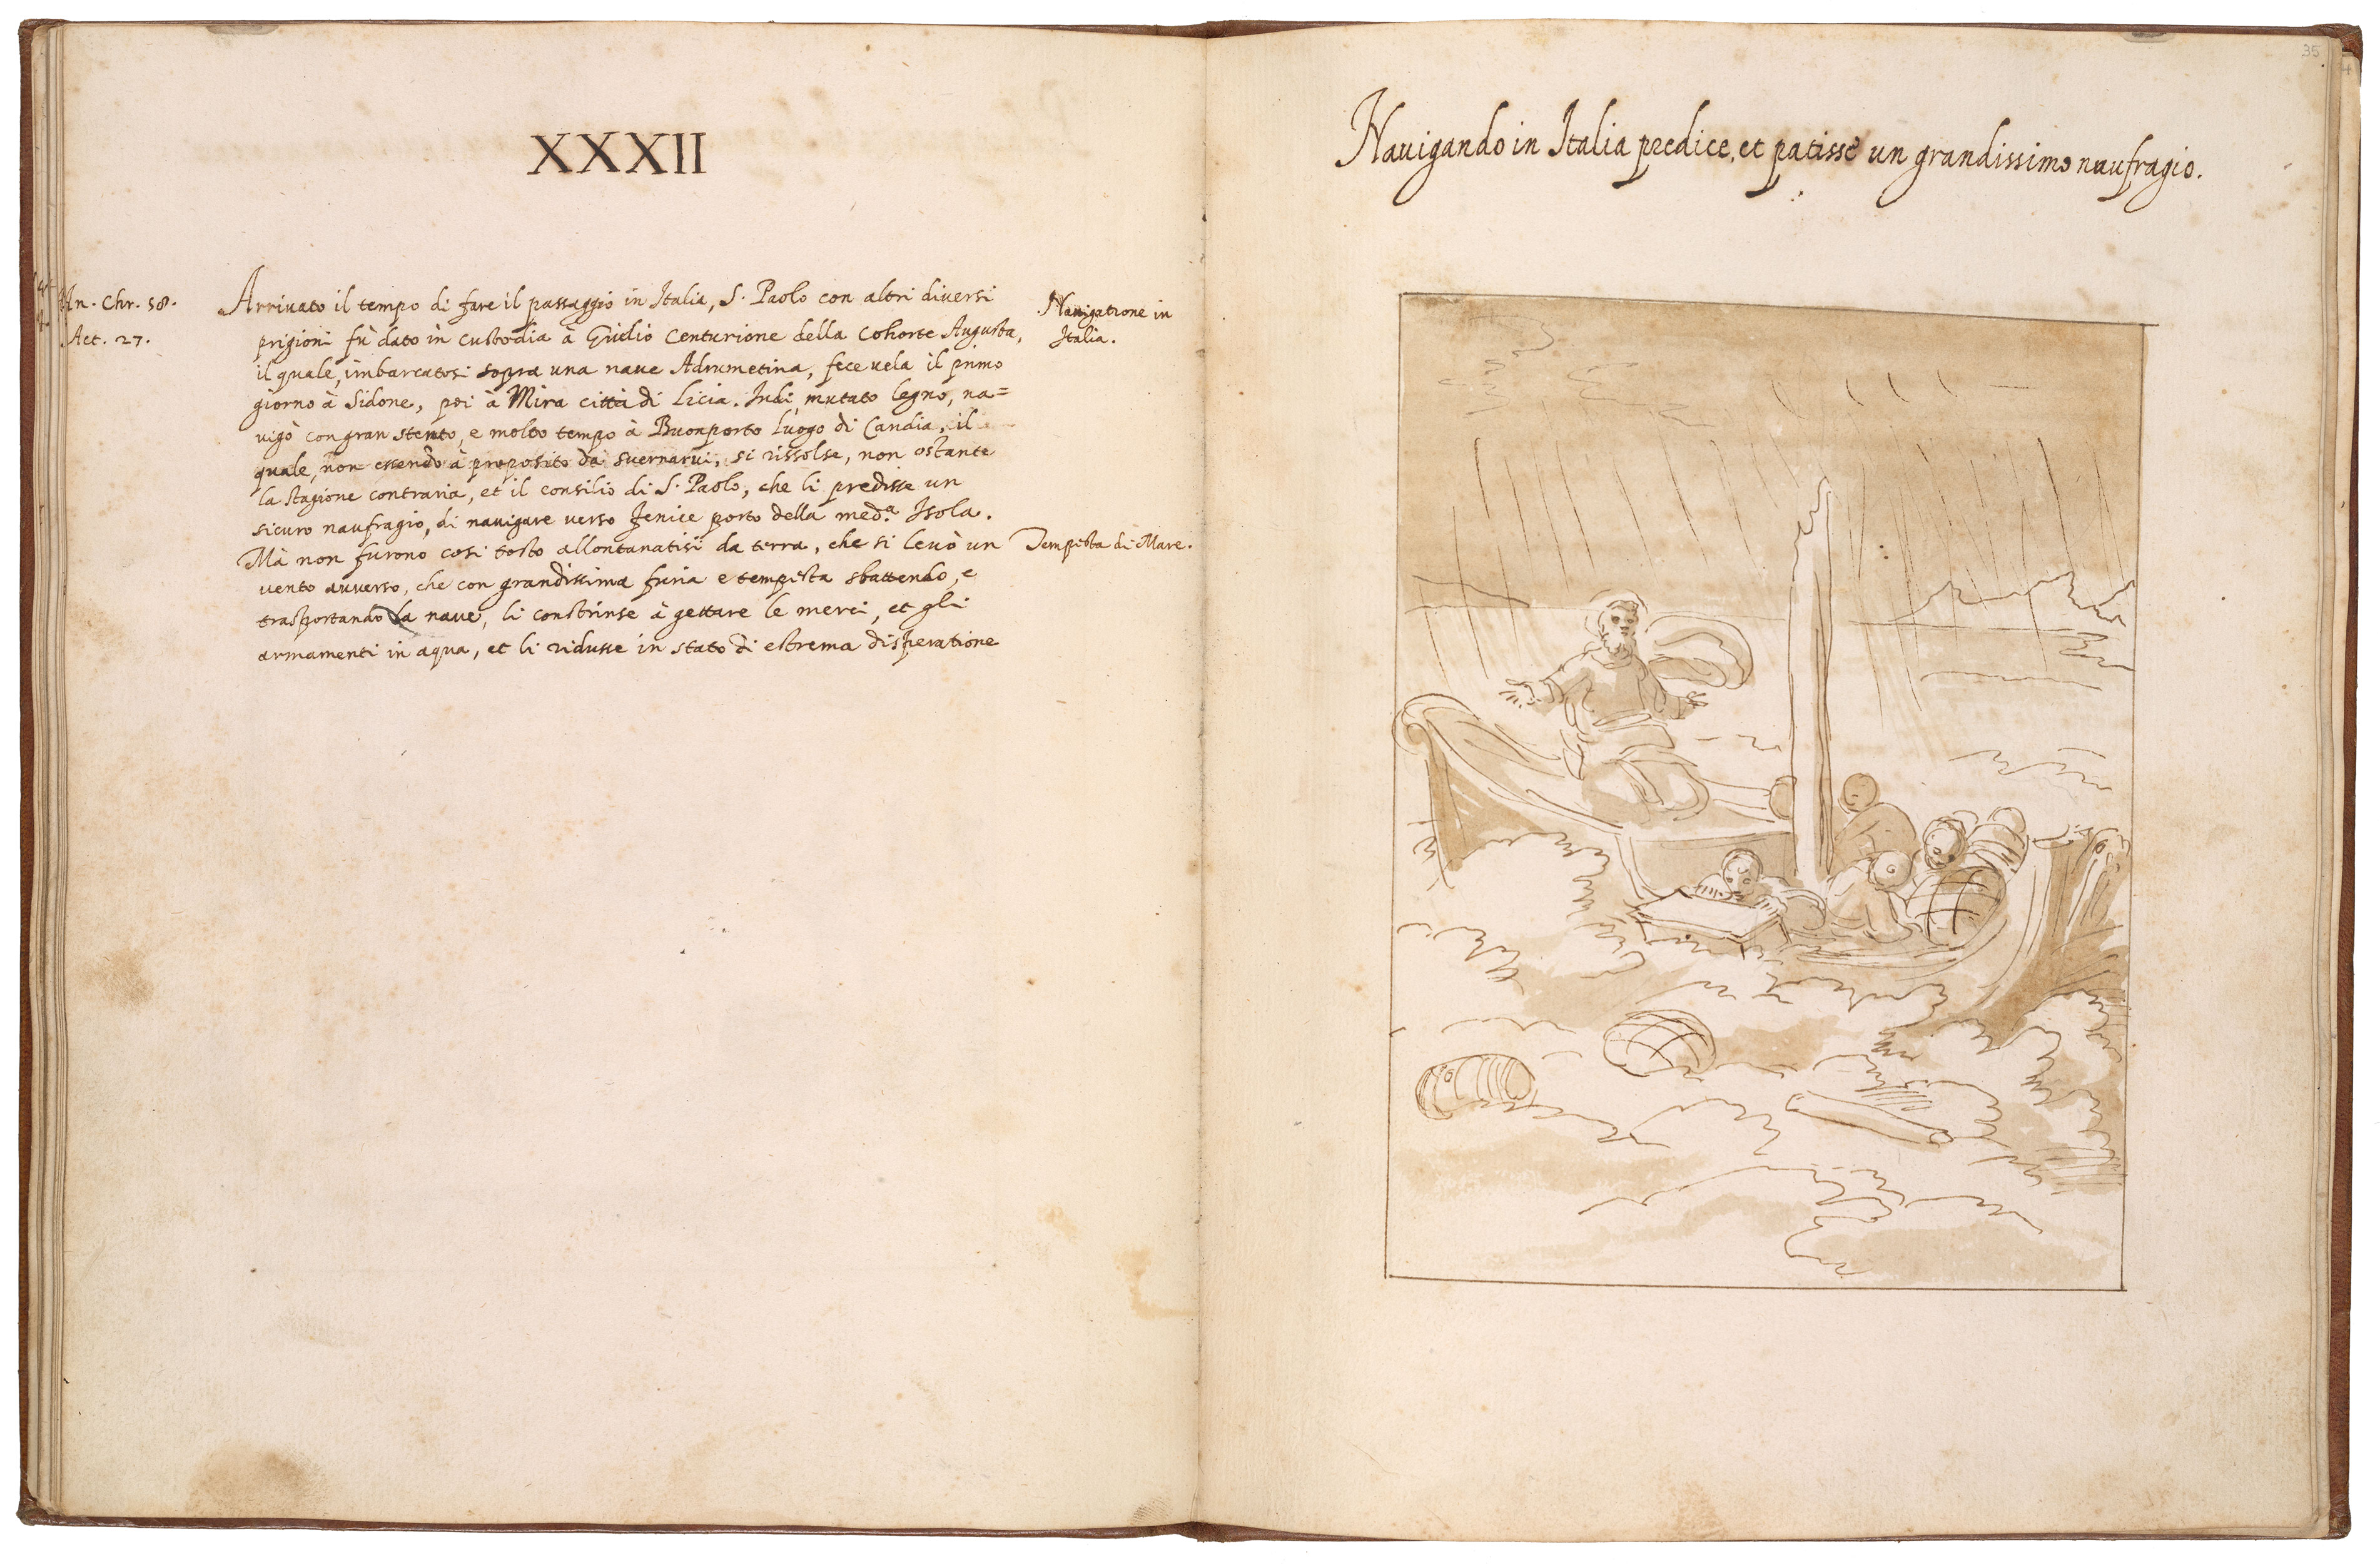 XXXII
An. Chr. 58.
Act. 27.
Arriuato il tempo di fare il passaggio in Italia, S. Paolo con altri diuersi
prigioni fù dato in custodia à Giulio Centurione della Cohorte Augusta,
il quale, imbarcatosi sopra una naue Adrumetina, fece uela il primo
giorno à Sidone, poi à Mira città di Licia. Indi, mutato legno, na=
uigò con gran stento, e molto tempo à Buonporto luogo di Candia, il
quale, non essendo à proposito da suernarui, si rissolse, non ostante
la stagione contraria, et il consilio di S. Paolo, che li predisse un
sicuro naufragio, di nauigare uerso Fenice porto della med.a Isola.
Mà non furono cosi tosto allontanatisi da terra, che si leuò un
uento auuerso, che con grandissima furia e tempesta sbattendo, e
trasportando la naue, li constrinse à gettare le merci, et gli
armamenti in aqua, et li ridusse in stato di estrema disperatione
Nauigatione in
Italia.
Tempesta di Mare.
35
Nauigando in Italia predice, et patisse un grandissimo naufragio.